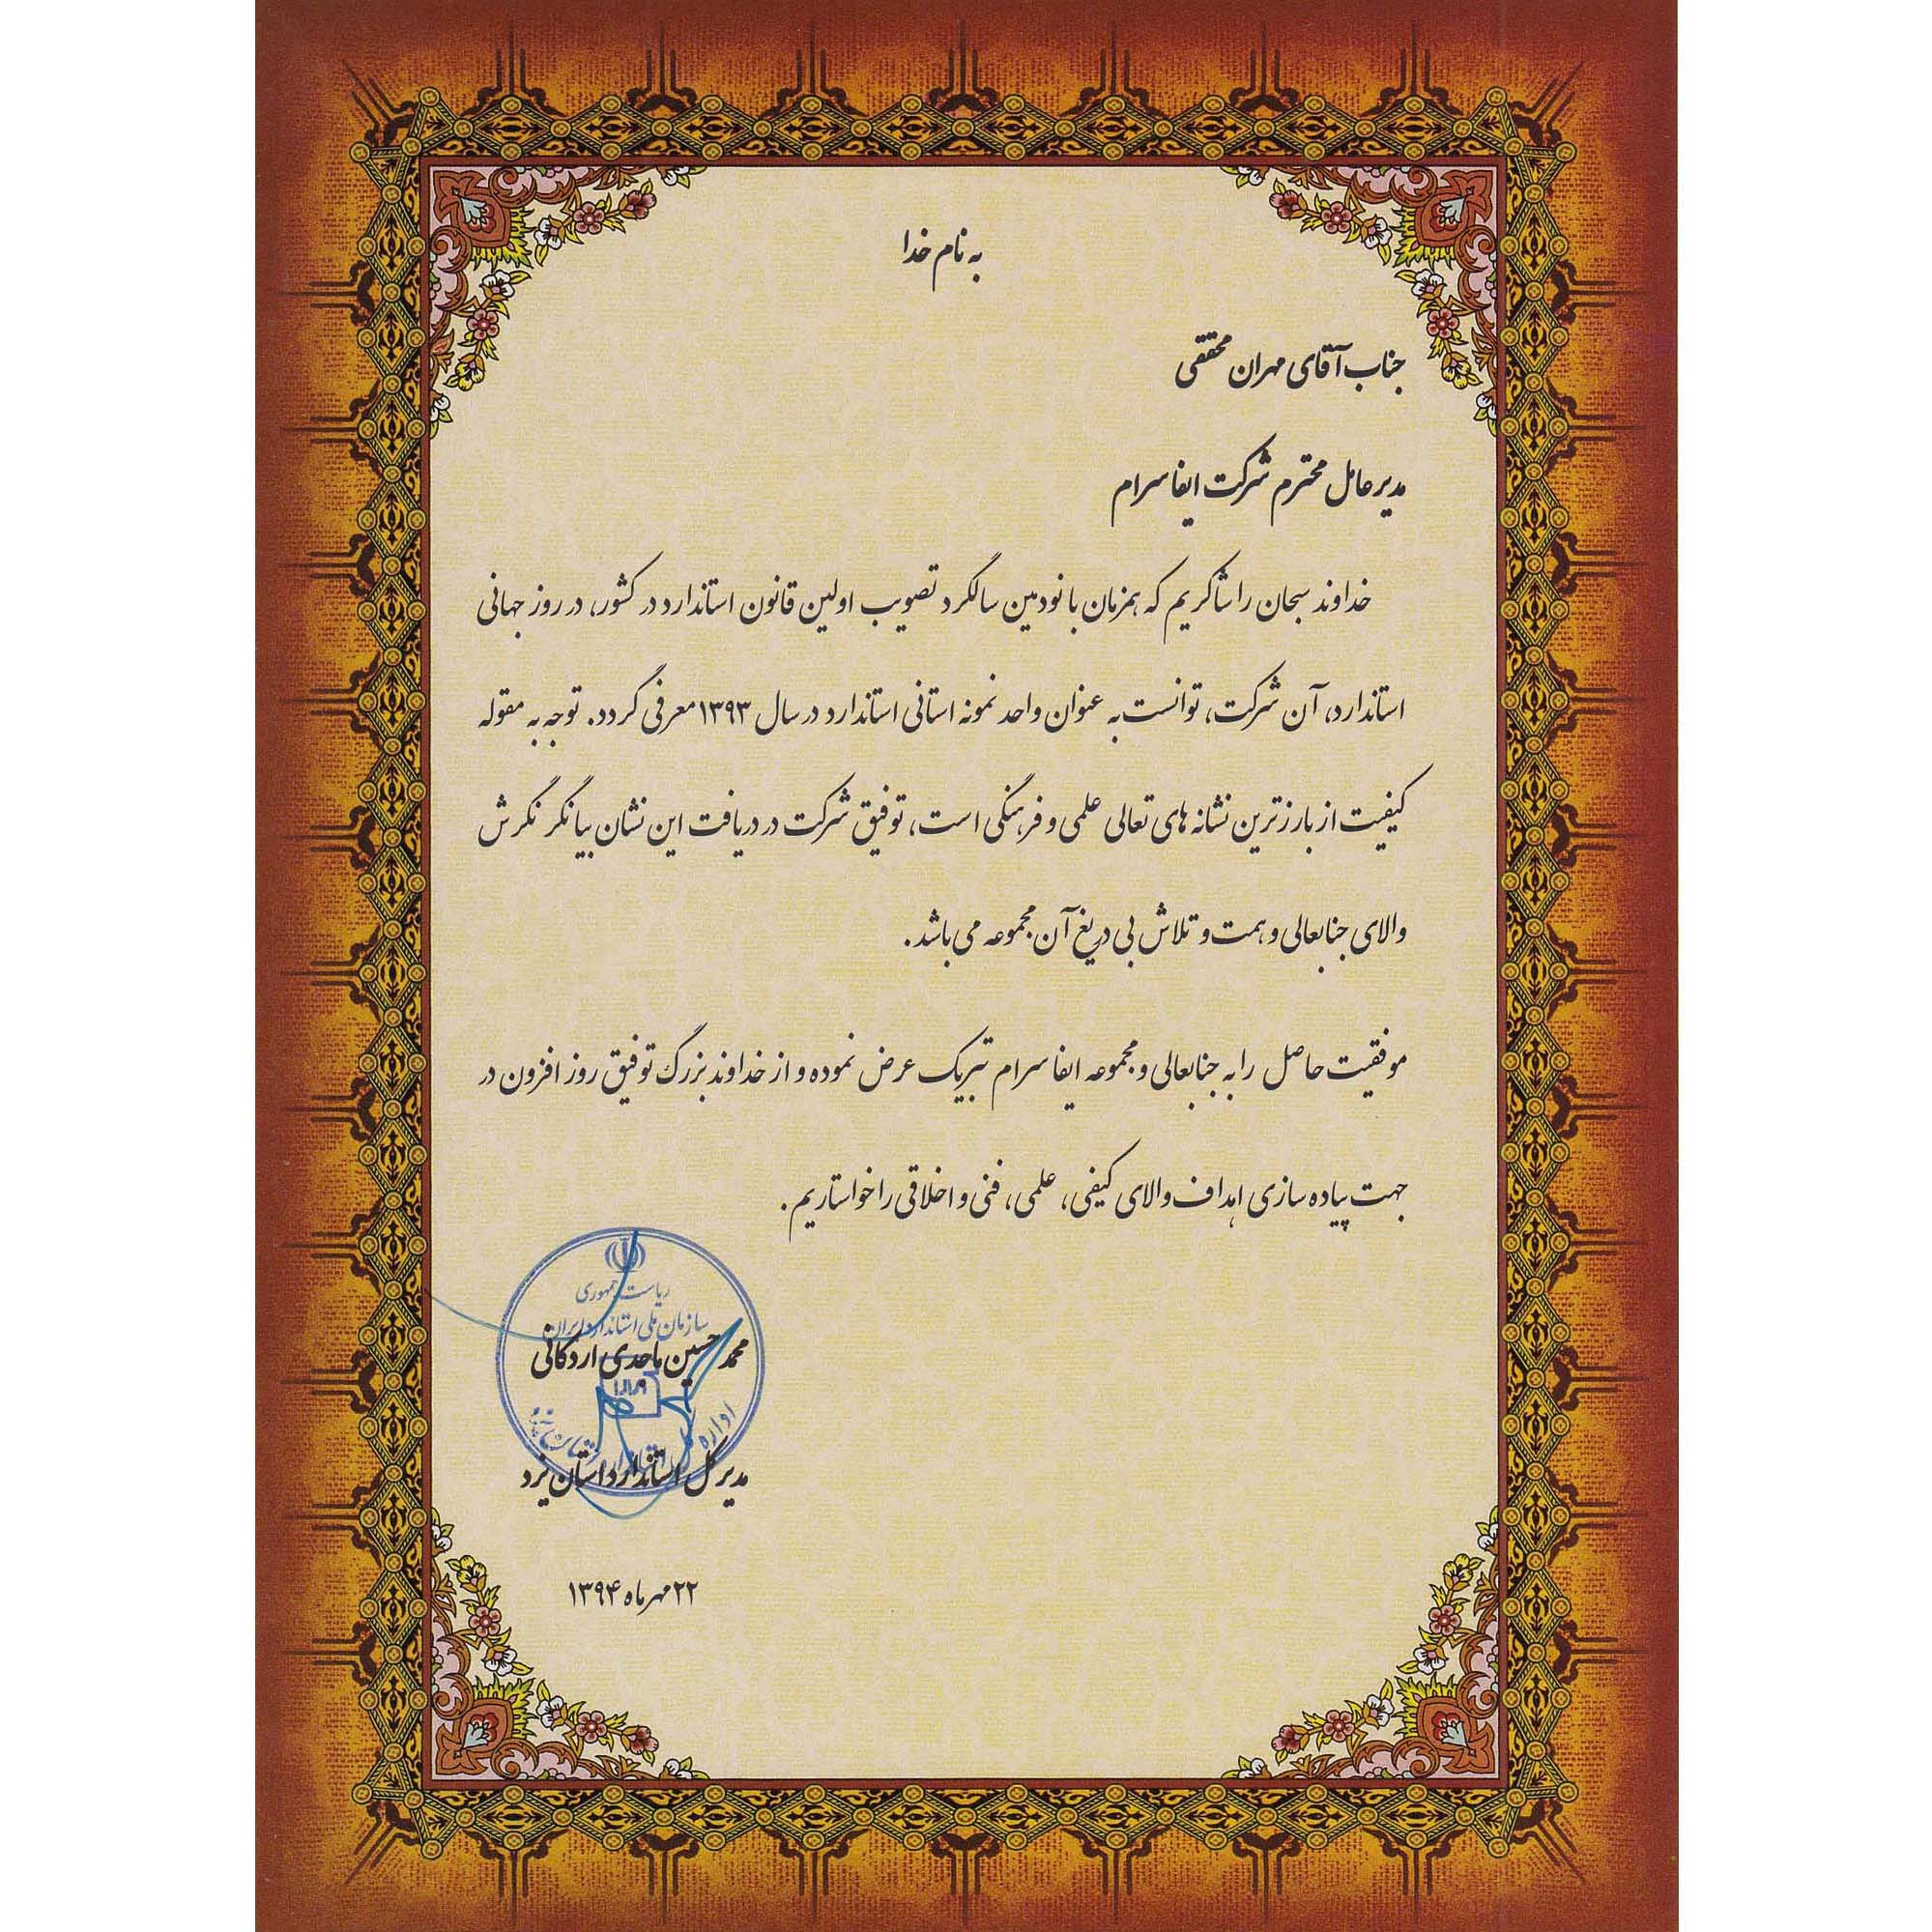 به نام خدا
جناب آقای مهران محققی
مدیر عامل محترم شرکت ایفا سرام
خداوند سبحان را شاکریم که همزمان با نودمین سالگرد تصویب اولین قانون استاندارد در کشور، در روز جهانی
استاندارد، آن شرکت، توانست به عنوان واحد نمونه استانی استاندارد در سال ۱۳۹۳ معرفی گردد. توجه به مقوله
کیفیت از بارزترین نشانه های تعالی علمی و فرهنگی است، توفیق شرکت در دریافت این نشان بیانگر نگرش
والای جنابعالی و همت و تلاش بی دریغ آن مجموعه می باشد.
موفقیت حاصل را به جنابعالی و مجموعه ایفا سرام تبریک عرض نموده و از خداوند بزرگ توفیق روز افزون در
جهت پیاده سازی اهداف والای کیفی، علمی، فنی و اخلاقی را خواستاریم.
ریاست جمهوری
سازمان ملی استاندارد ایران
محمد حسین ماجدی اردکانی
اداره کل
مدیر کل استاندارد استان یزد
۲۲ مهر ماه ۱۳۹۴